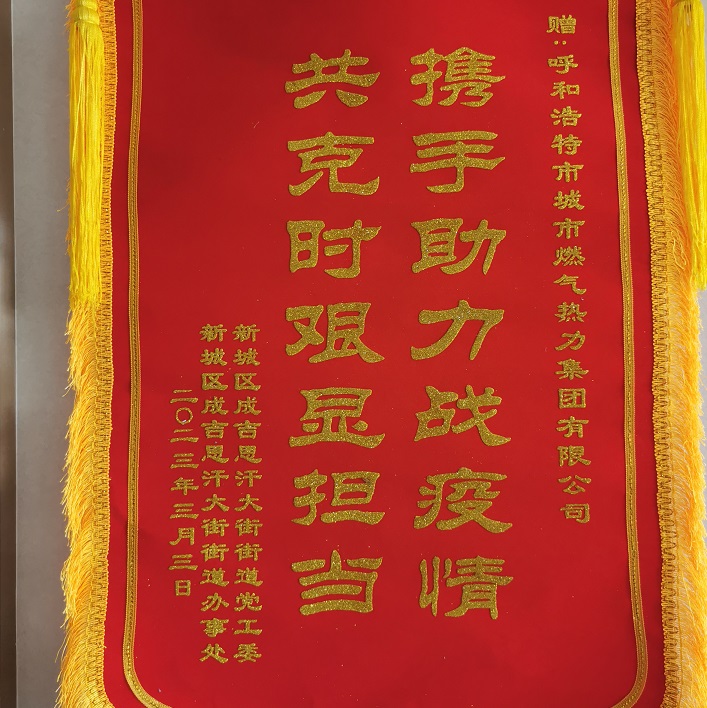 赠:呼和浩特市城市燃气热力集团有限公司
携手助力战疫情
共克时艰显担当
新城区成吉思汗大街街道党工委
新城区成吉思汗大街街道办事处
二〇二三年三月三日